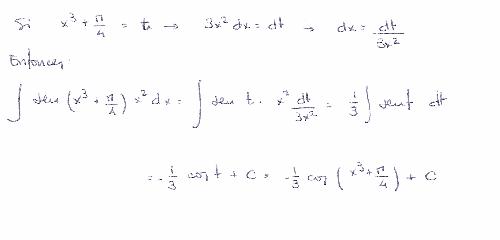 Si x³ + π/4 = t → 3x² dx = dt → dx = dt/3x²
Entonces:
∫ sen (x³ + π/4) x² dx = ∫ sen t · x² dt/3x² = 1/3 ∫ sen t dt
= -1/3 cos t + C = -1/3 cos (x³ + π/4) + C